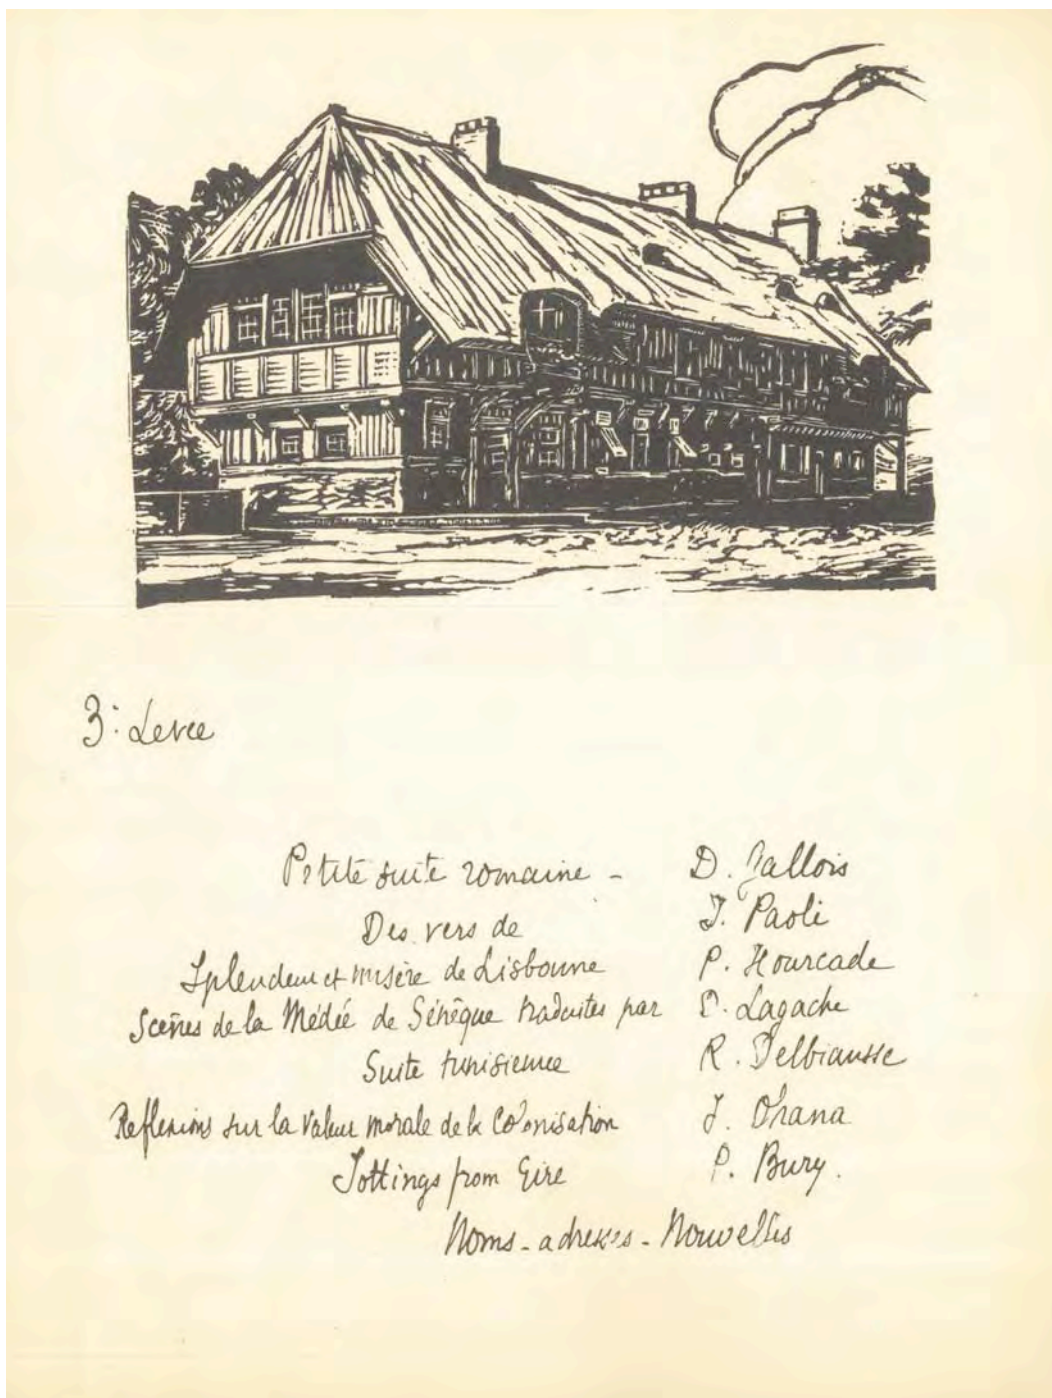 3: Levée
Petite suite romaine - D. Gallois
Des vers de J. Paoli
Splendeur et misère de Lisbonne P. Hourcade
Scènes de la Médée de Sénèque traduites par Lagache
Suite tunisienne R. Delbiausse
Reflexions sur la valeur morale de la Colonisation J. Ohana
Jottings from Eire P. Bury.
Noms - adresses - Nouvelles